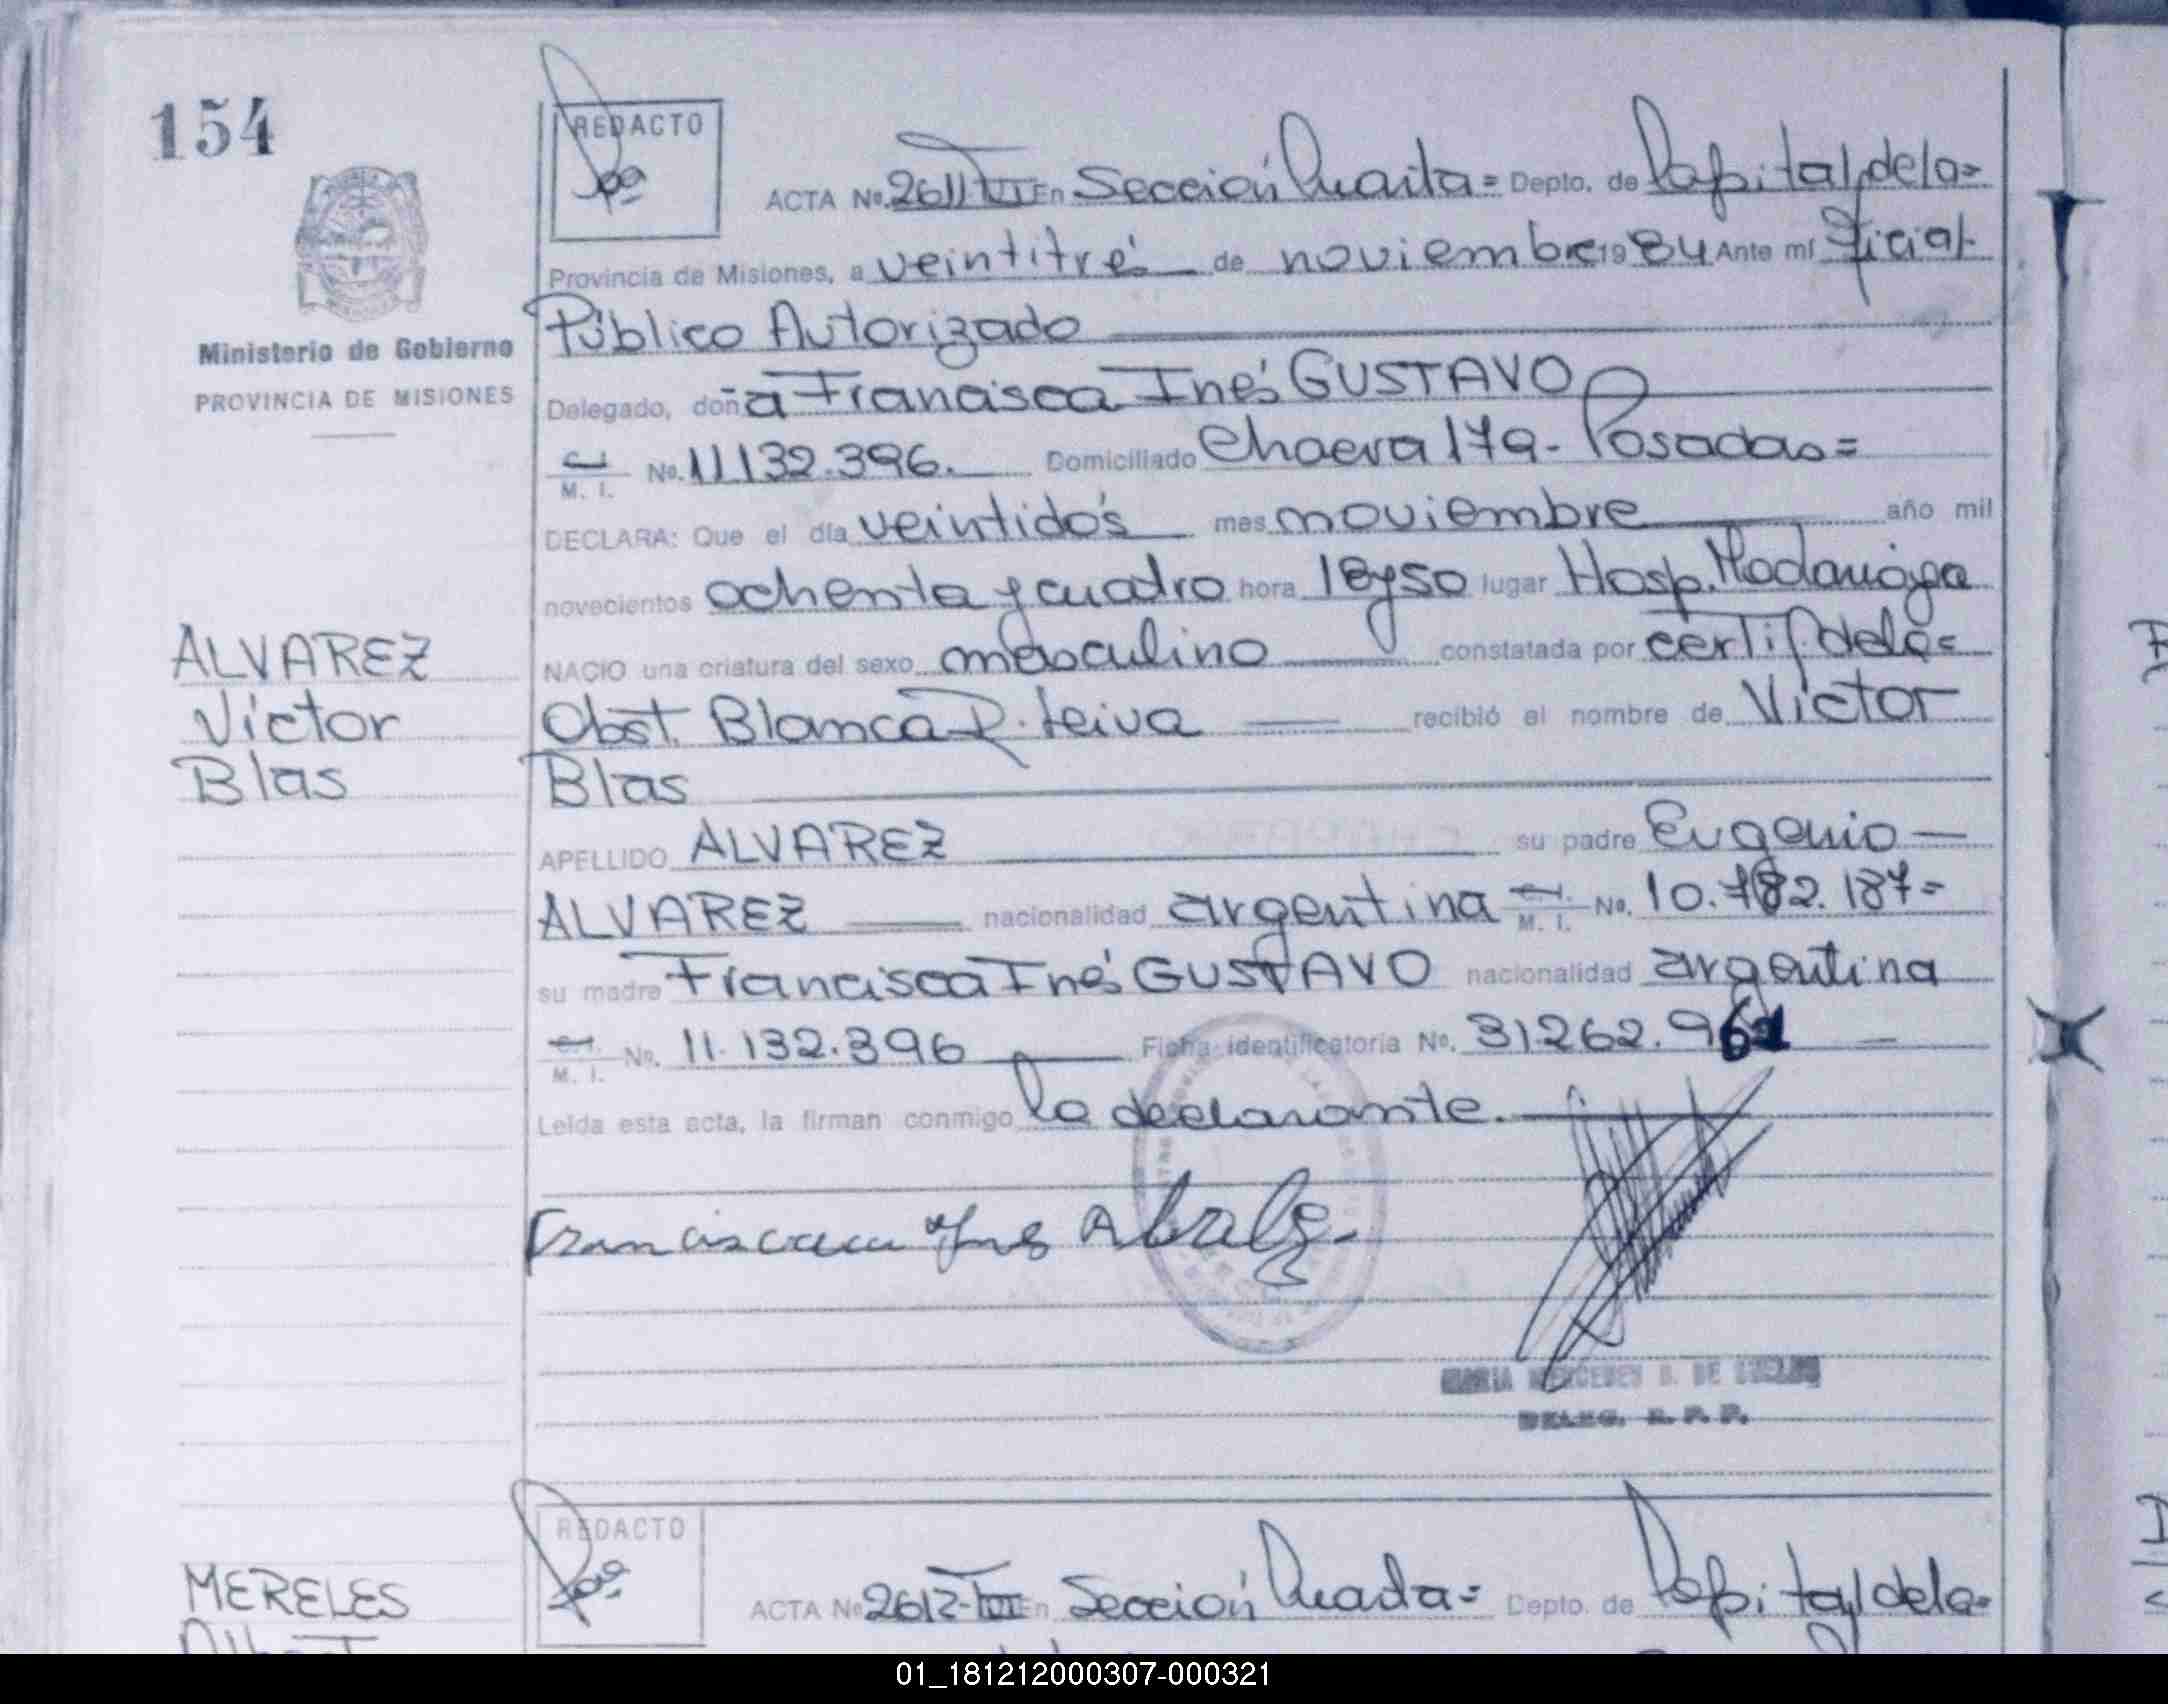 154
REDACTO
ACTA No. 2611 En Sección Cuarta= Depto. de Capital, de la=
Provincia de Misiones, a veintitrés de noviembre 1984 Ante mí Oficial
Público Autorizado
Ministerio de Gobierno
PROVINCIA DE MISIONES
Delegado, doña Francisca Inés GUSTAVO
M. I. No. 11.132.396. Domiciliado 179- Posadas=
DECLARA: Que el día veintidós mes noviembre año mil
novecientos ochenta y cuatro hora 18y50 lugar Hosp. Madariaga
NACIO una criatura del sexo masculino constatada por certif. de la=
Obst. Blanca R. Leiva recibió el nombre de Víctor
Blas
ALVAREZ
Víctor
Blas
APELLIDO ALVAREZ su padre Eugenio
ALVAREZ nacionalidad argentina C.I. M. I. No. 10.782.187=
su madre Francisca Inés GUSTAVO nacionalidad argentina
C.I. M. I. No. 11.132.396 Ficha identificatoria No. 31.262.961
Leída esta acta, la firman conmigo la declarante.
MARIA MERCEDES DE
DELEG. R. P. P.
REDACTO
MERELES
ACTA No 2612- En Sección Cuarta= Depto. de Capital de la=
01_181212000307-000321